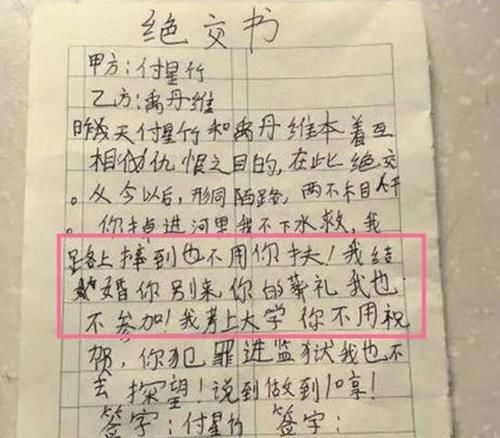 绝交书
甲方:付星竹
乙方:禹丹维
昨天付星竹和禹丹维本着互
相仇恨之目的,在此绝交
。从今以后,形同陌路,两不相干
。你掉进河里我不下水救,我
路上摔到也不用你扶!我结
婚你别来你的葬礼我也
不参加!我考上大学你不用祝
贺,你犯罪进监狱我也不
去探望!说到做到!哼!
签字:付星竹 签字: